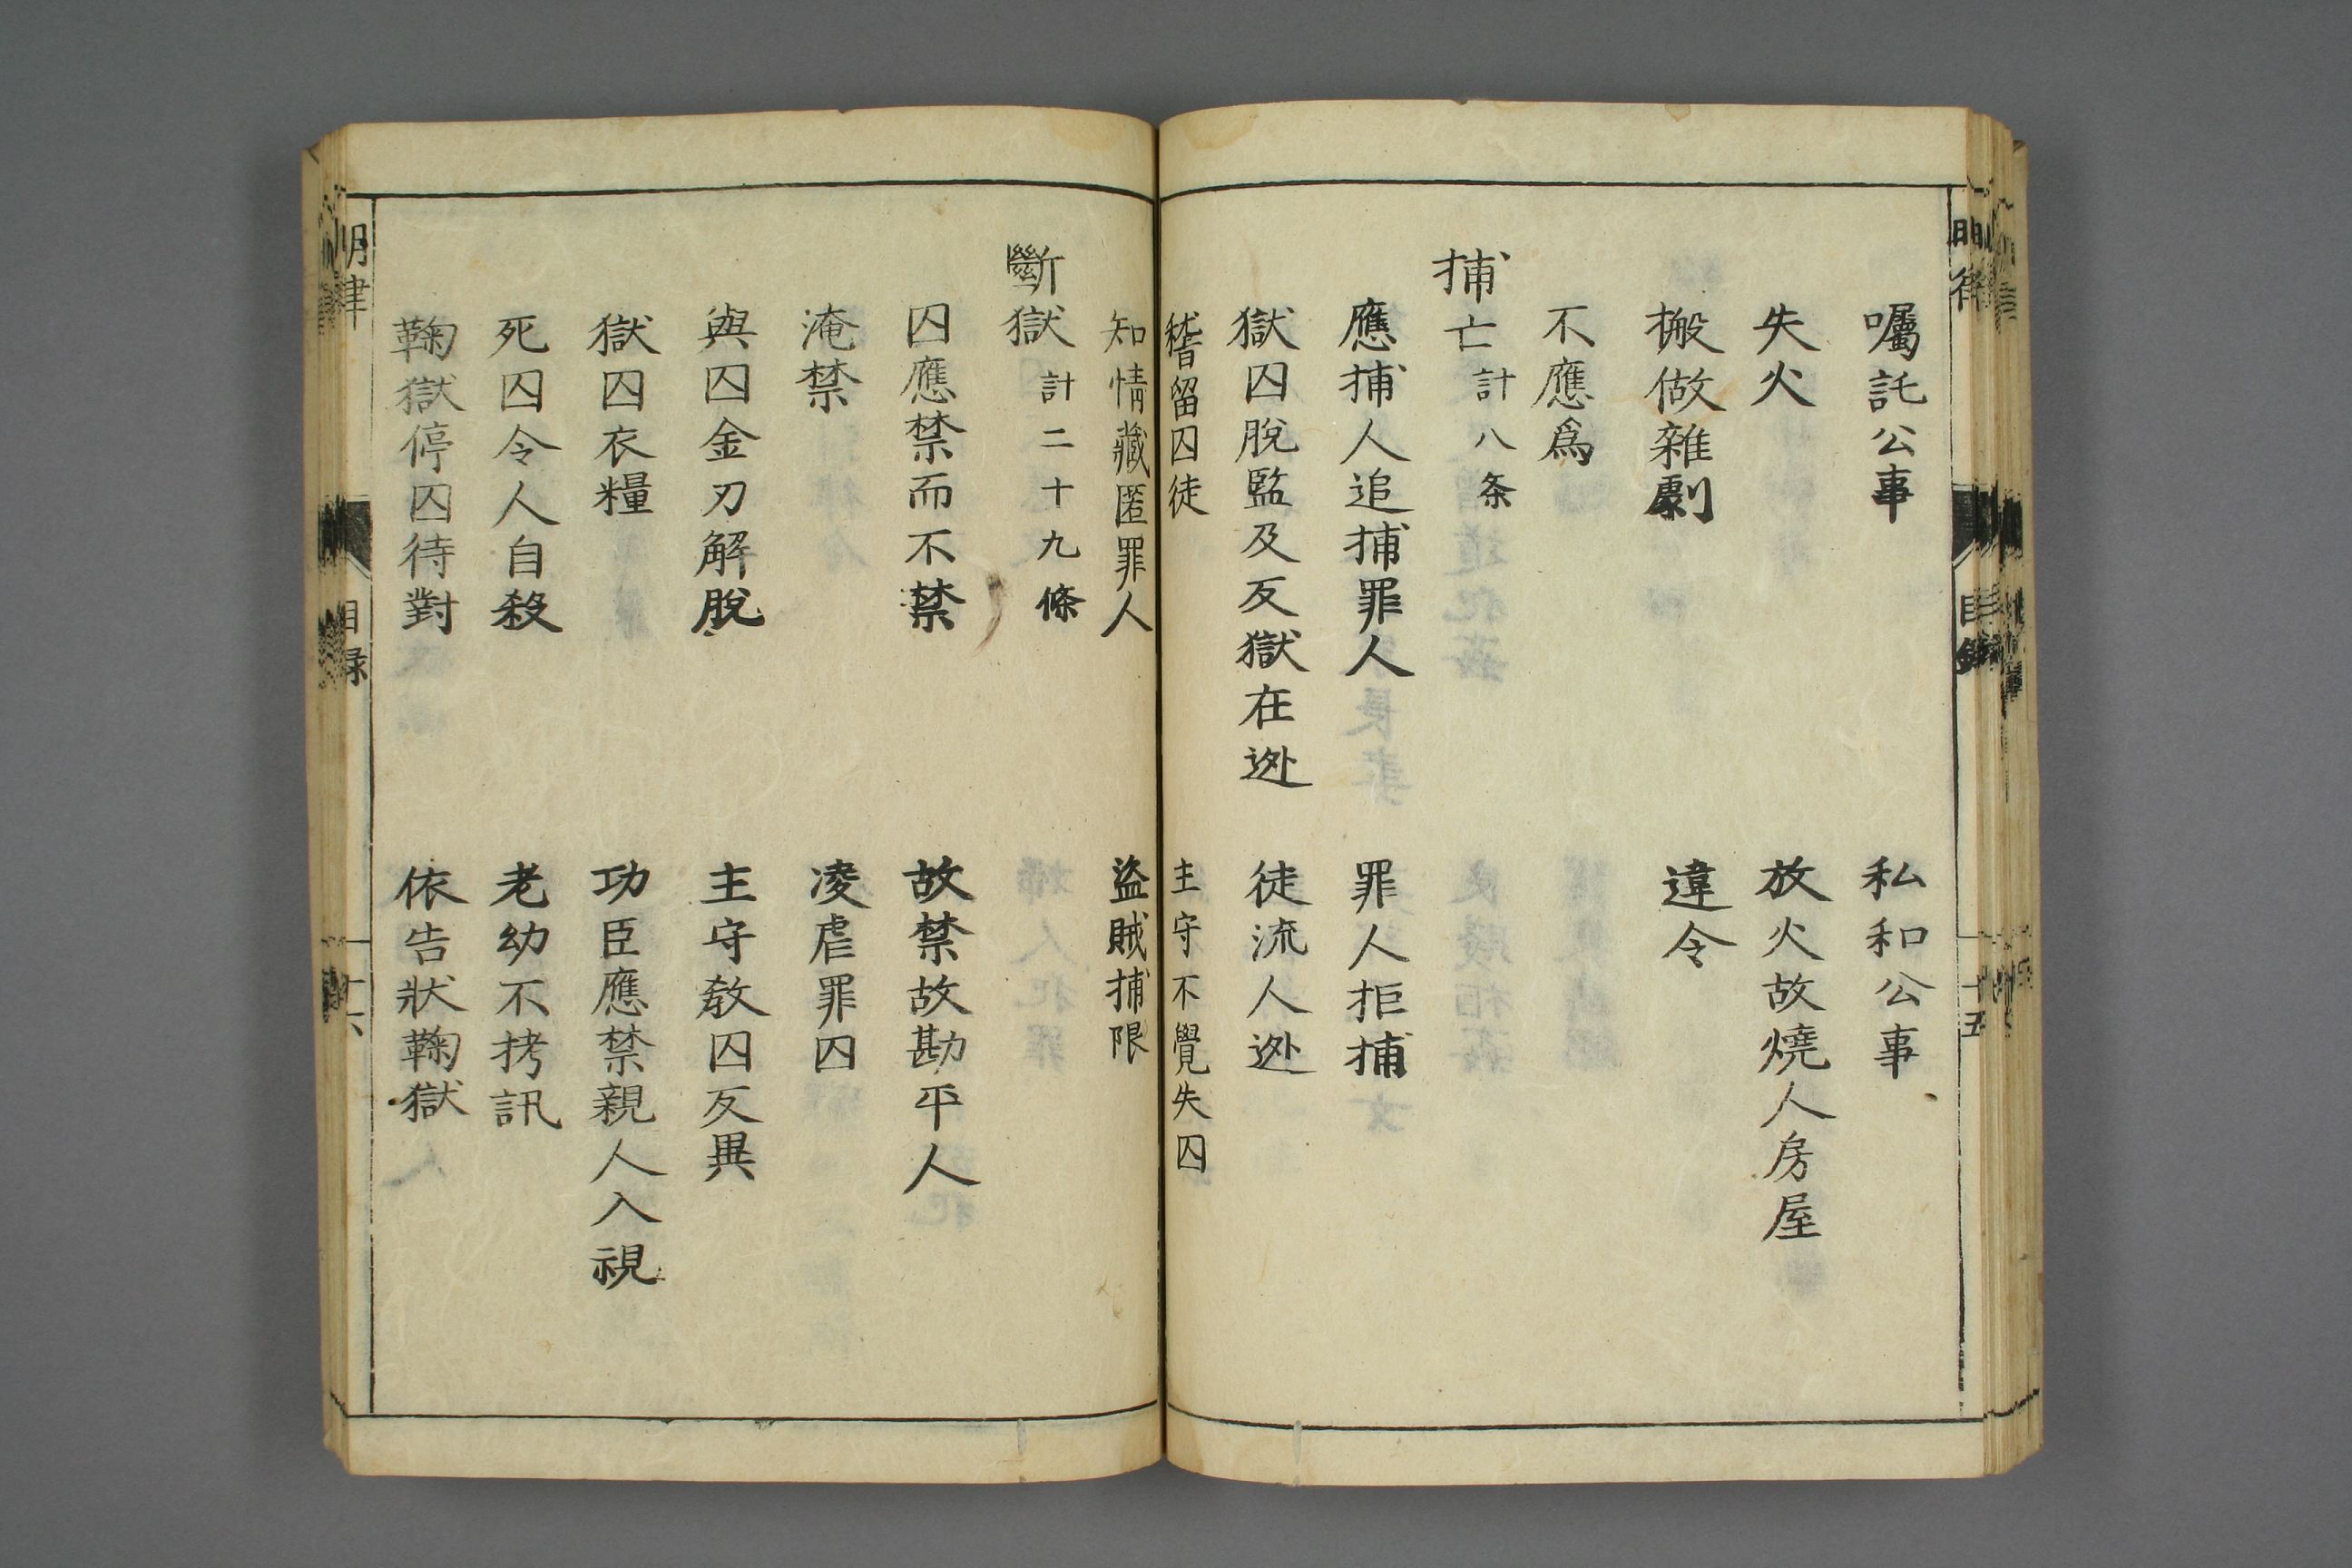 囑託公事　私和公事
失火　放火故燒人房屋
搬做雜劇　違令
不應爲
捕亡計八条
應捕人追捕罪人　罪人拒捕
獄囚脫監及反獄在迯　徒流人迯
稽留囚徒　主守不覺失囚
知情藏匿罪人　盜賊捕限
斷獄計二十九條
囚應禁而不禁　故禁故勘平人
淹禁　凌虐罪囚
與囚金刃解脫　主守教囚反異
獄囚衣糧　功臣應禁親人入視
死囚令人自殺　老幼不拷訊
鞫獄停囚待對　依告狀鞫獄
明律　目録　十六
目録　十五